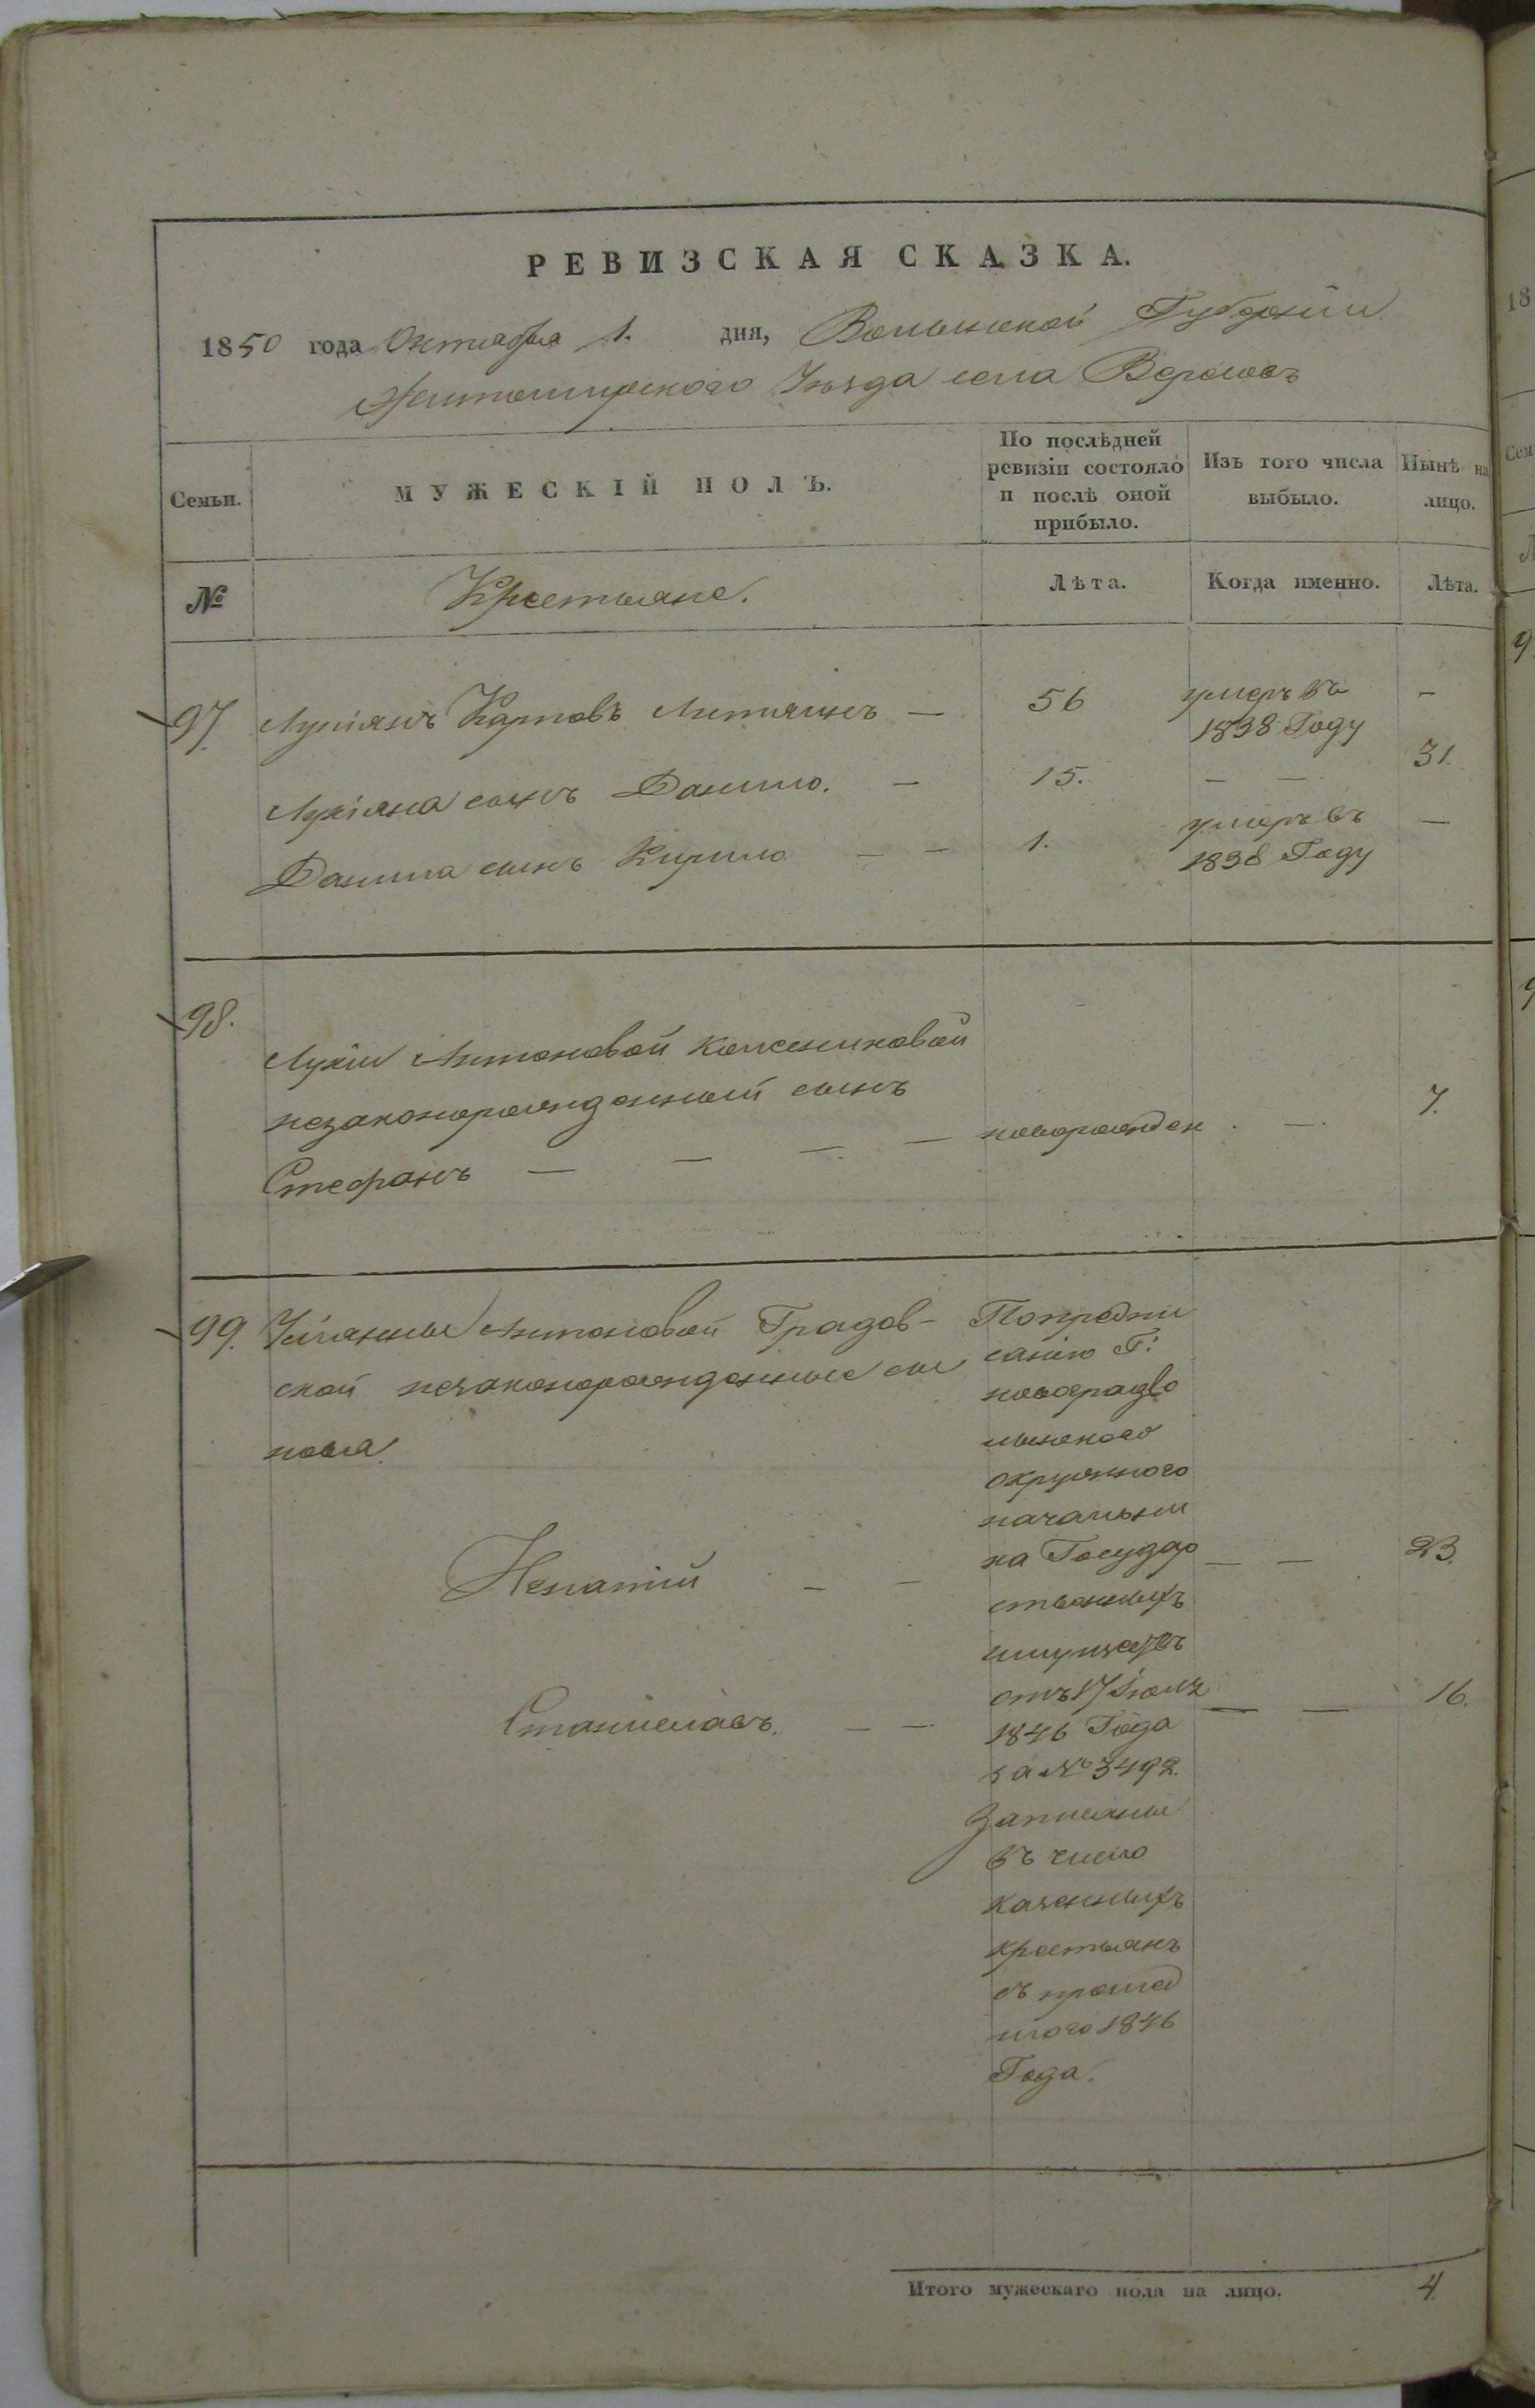 РЕВИЗСКАЯ СКАЗКА.
1850 года Октября 1. дня, Волынской Губерніи
Житомирского Уѣзда села Вересовъ
Семьи.
МУЖЕСКІЙ ПОЛЪ.
По послѣдней ревизіи состояло и послѣ оной прибыло.
Изъ того числа выбыло.
Нынѣ на лицо.
№
Крестьяне.
Лѣта.
Когда именно.
Лѣта.
97. Лукіянъ Карповъ — 56 умеръ въ 1838 Году —
Лукіяна сынъ Данило. — 15. — — 31.
Данила сынъ Кирило — — 1. умеръ въ 1838 Году —
98.
Лукіи Антоновой
незаконорожденный сынъ
Стефанъ — — — — новорожден . — . 7.
99. Уліянны Антоновой Градов-
ской незаконорожденные сы
новья.
Игнатій — — — — 23.
Станиславъ. — — — — 16.
Попредпи
санію Г:
новоградво
лынского
окружного
начальни
ка Государ
ственныхъ
имуществъ
отъ 17 Іюля
1846 Года
за № 3492.
Записаны
въ число
казенныхъ
крестьянъ
съ прошед
шого 1846
Года.
Итого мужескаго пола на лицо. 4